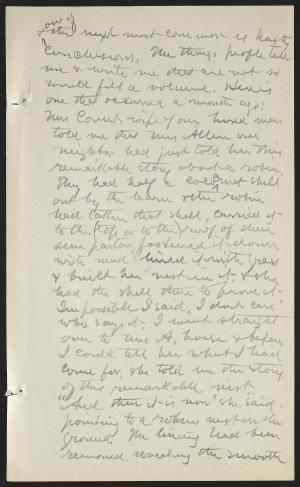 one of
the next most common is hasty
Conclusions, The things people tell
me & write me that are not so
would fill a volume. Here is
one that occurred a month ago;
Mrs Covert wife of our hired man
told me that Mrs Allen our
neighbor had just told her this
remarkable story about a robin.
They had half a cocoanut shell
out by the barn & the robin
had taken that shell, carried it
to the (top or to the) roof of their
sun parlor, fastened it down
with mud lined it with grass
& built her nest in it & she
had the shell there to prove it.
Impossible I said, I dont care
who says it. I went straight
over to Mrs A, house & before
I could tell her what I had
come for, she told me the story
of this remarkable nest
"And there it is now" she said,
pointing to a robins nest on the
ground. The lining had been
removed revealing the smooth